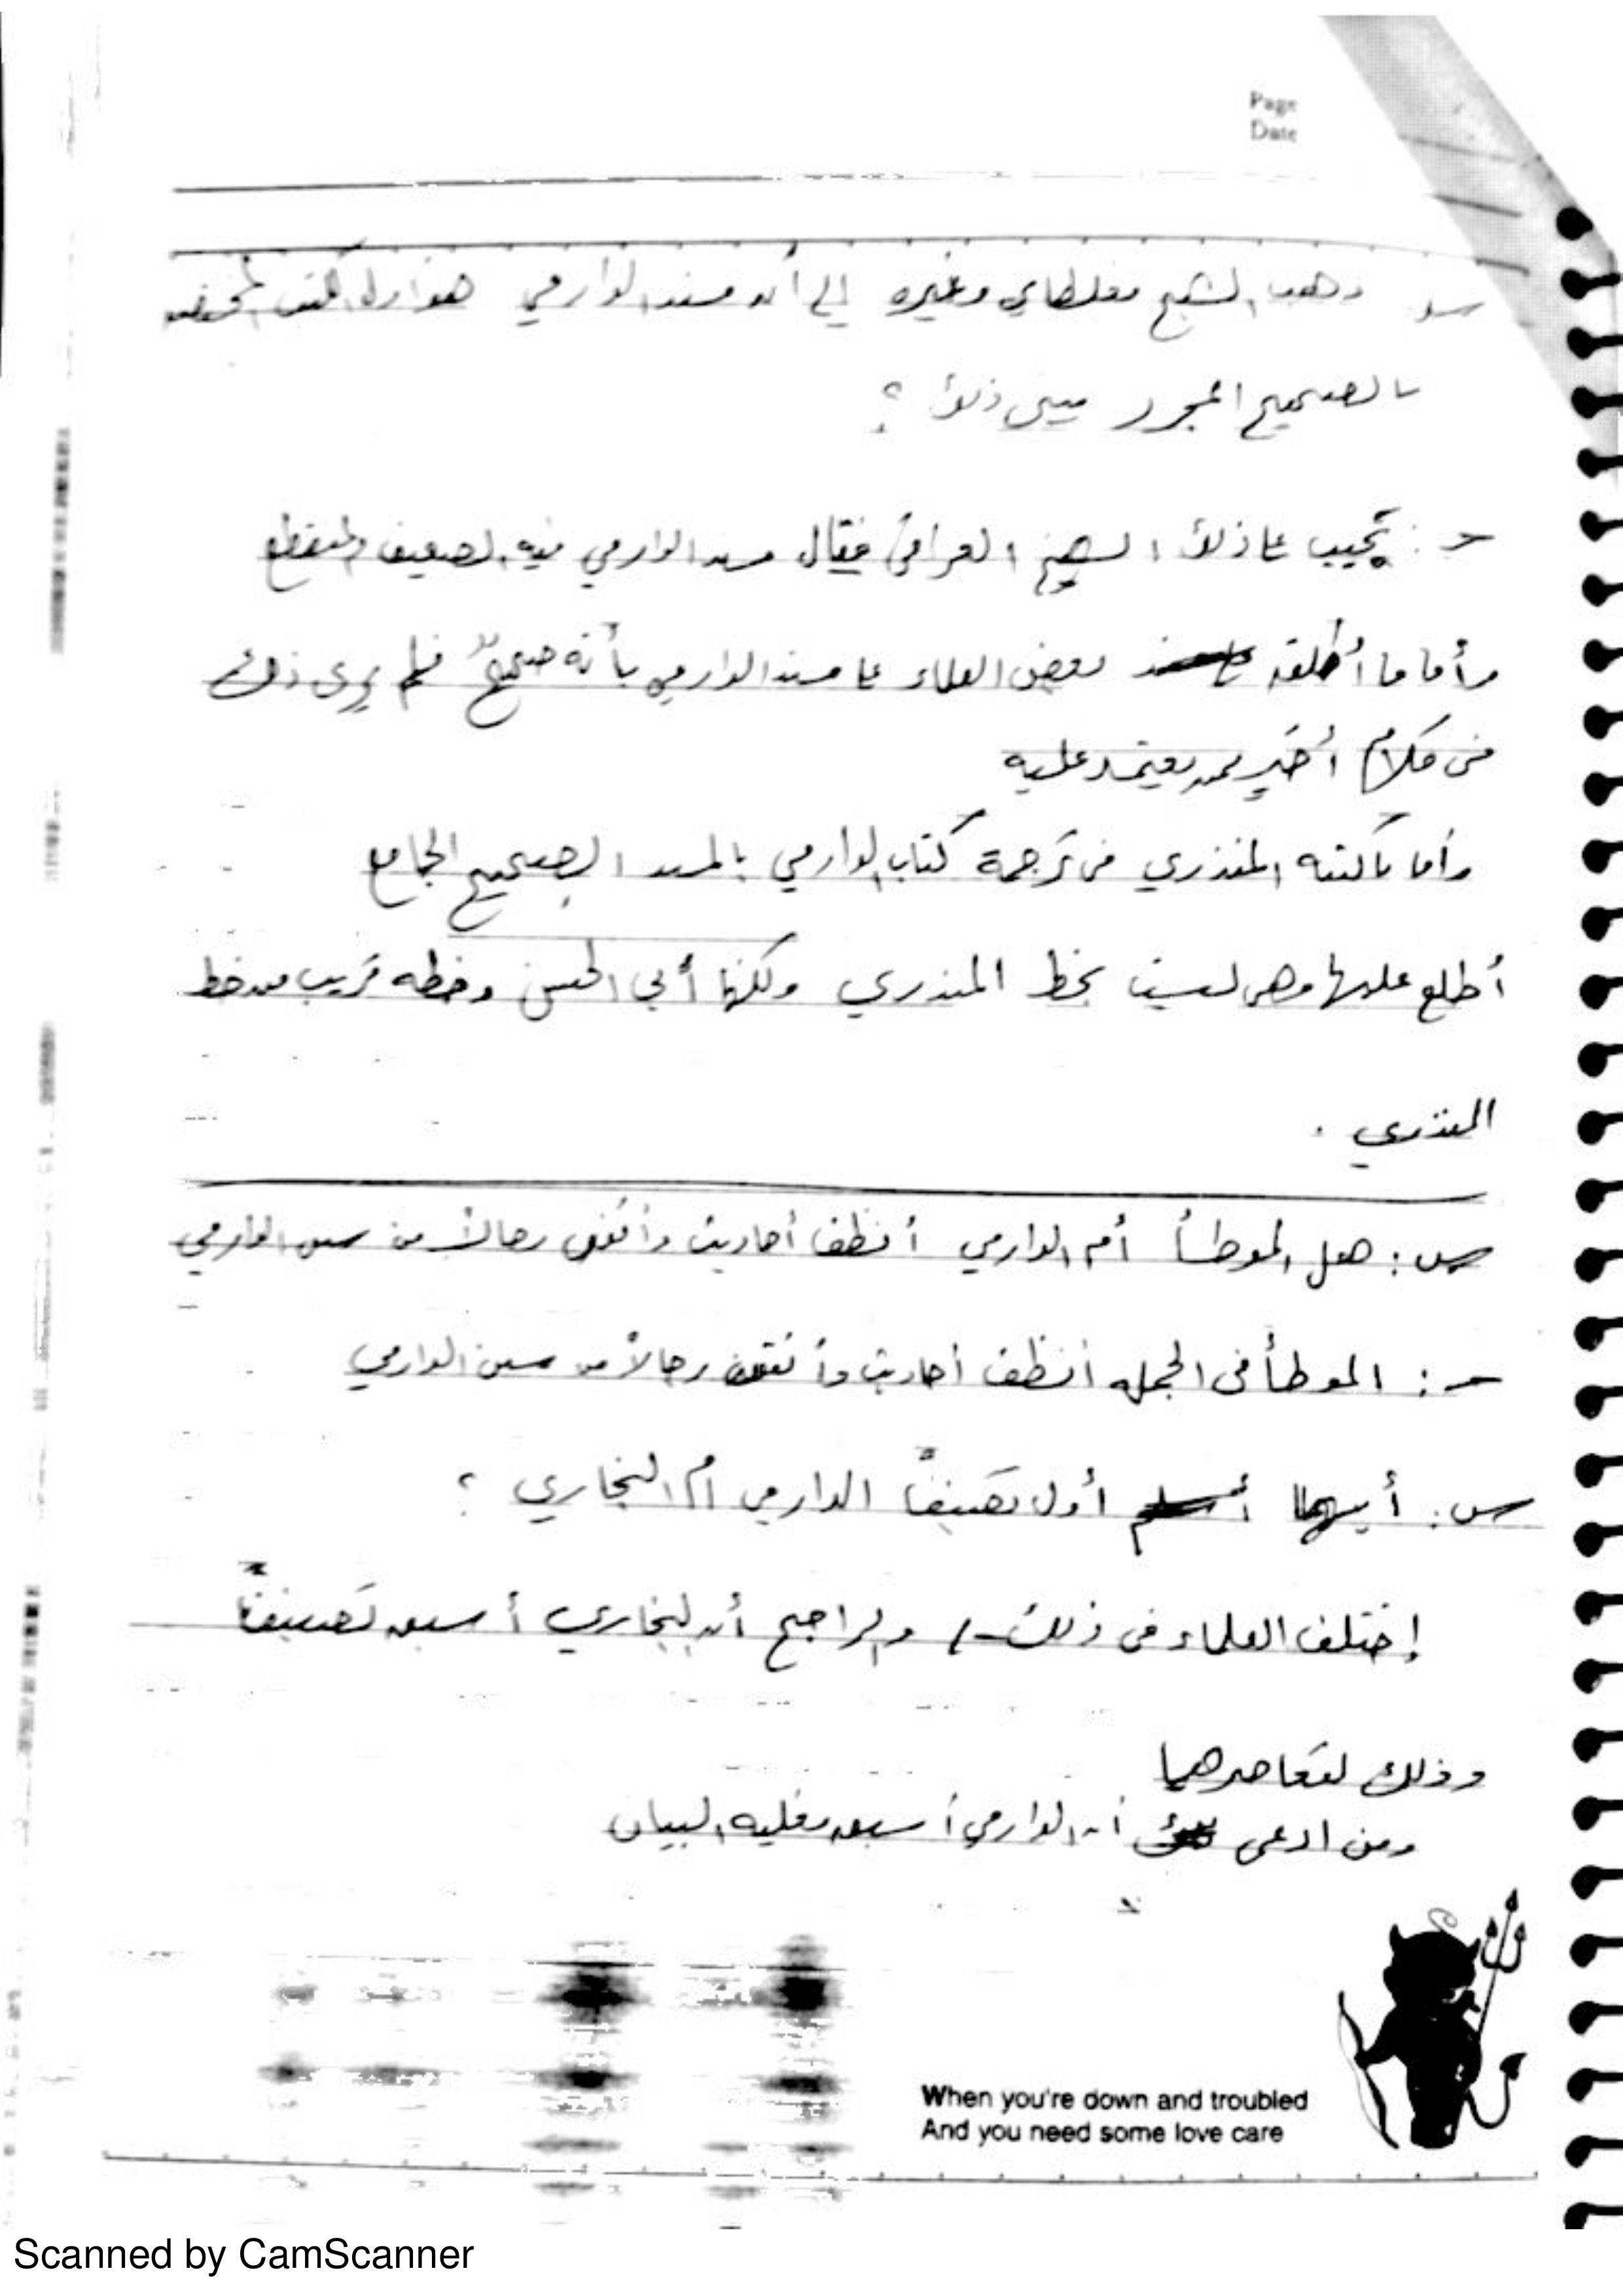 Page
Date
س ذهب الشيخ مغلطاي وغيره إلي أن مسند الدارمي هو أول الكتب المصنفه
بالصحيح المجرد بيني ذلك ؟
حـ : يجيب علي ذلك الشيخ العراقي فقال مسند الدارمي فيه الضعيف والمنقطع
وأما ما أطلقه بعض العلماء علي مسند الدارمي بأنه صحيحٌ فلم يري ذلك
في كلام أخير ممن يعتمد عليه
وأما ما كتبه المنذري في ترجمة كتاب الدارمي بالمسند الصحيح الجامع
أطلع عليها وهي ليست بخط المنذري ولكنها أبي الحسن وخطه قريب من خط
المنذري .
س : هل الموطأ أم الدارمي أنظف أحاديث وأتقن رجالاً من سنن الدارمي
حـ : الموطأ في الجمله أنظف أحاديث وأتقن رجالاً من سنن الدارمي
س : أيهما أول تصنيفاً الدارمي أم البخاري ؟
إختلف العلماء في ذلك ، والراجح أن البخاري أسبق تصنيفاً
وذلك لتعاصرهما
ومن ادعى أن الدارمي أسبق فعليه البيان
When you're down and troubled
And you need some love care
Scanned by CamScanner